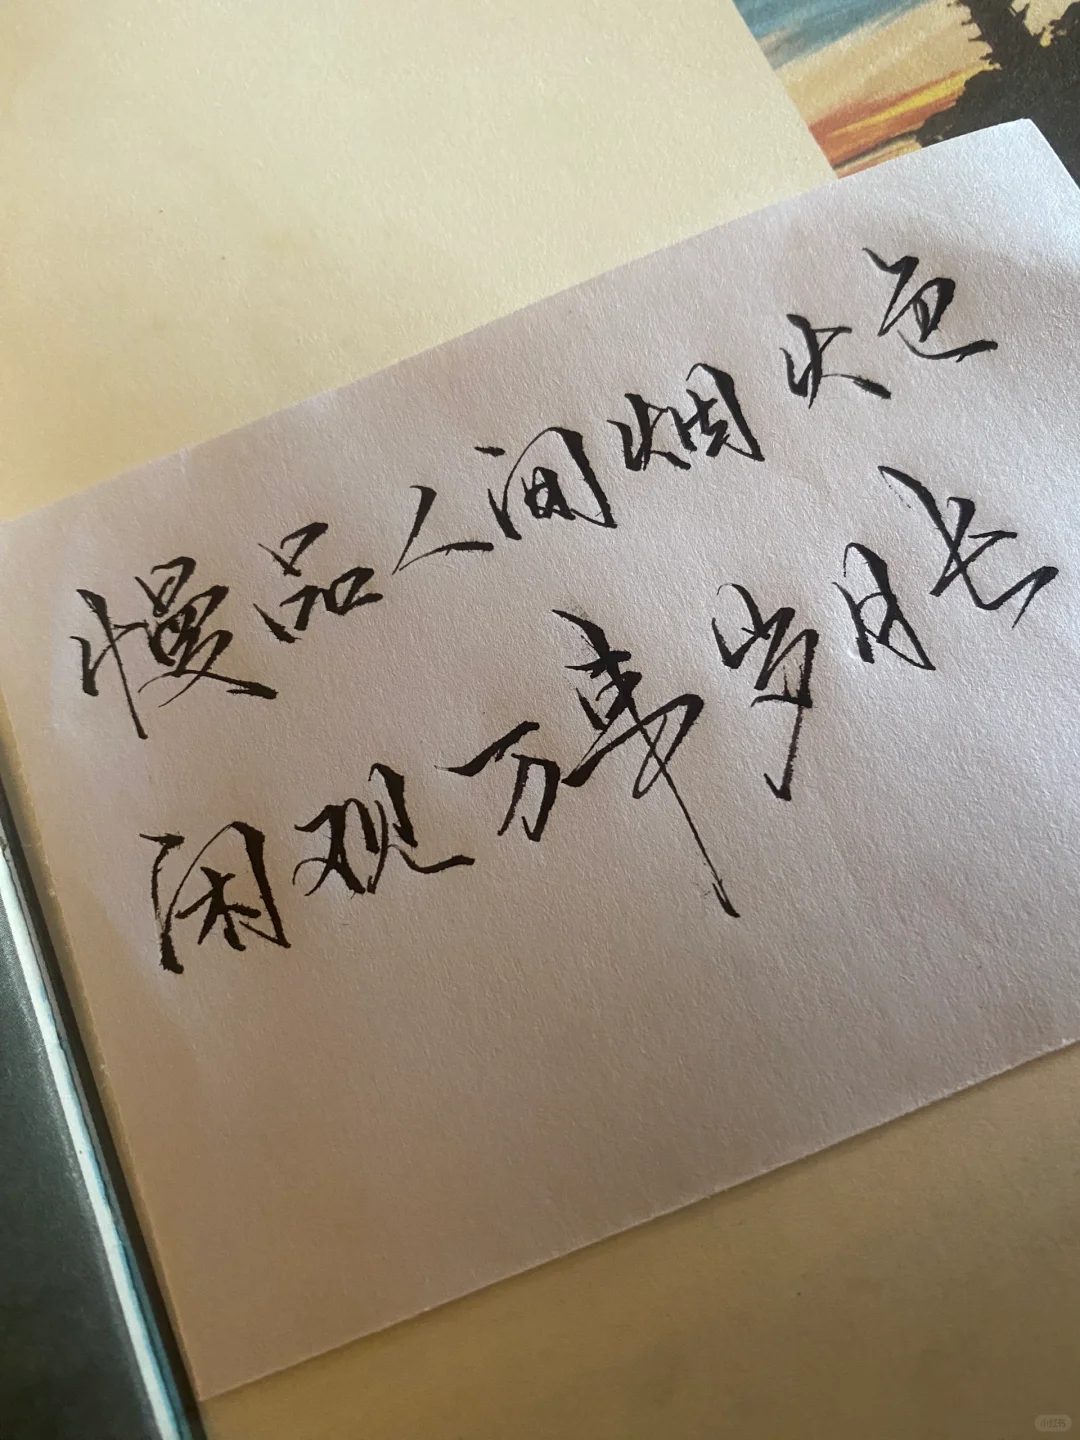 慢品人间烟火色
闲观万事岁月长
小红书